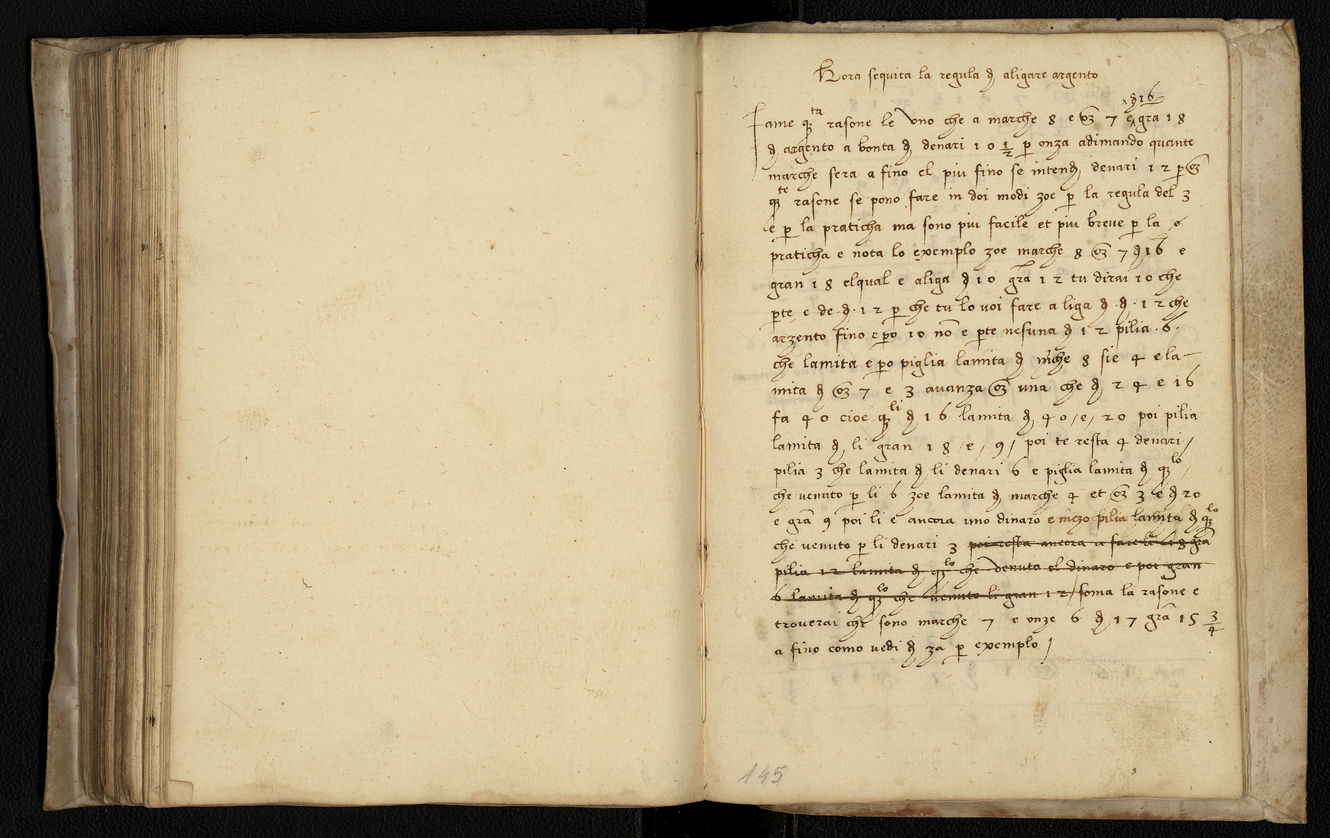 Hora sequita la regula đ aligare argento
đ 16
Fame qta rasone le uno che a marche 8 e oz 7 e gra 18
đ argento a bonta đ denari 10 1/2 p onza adimando quante
marche sera a fino el piu fino se intend denari 12 p oz
qte rasone se pono fare in doi modi zoe p la regula del 3
e p la praticha ma sono piu facile et piu breve p la
praticha e nota lo exemplo zoe marche 8 oz 7 đ 16 e
gran 18 elqual e aliga đ 10 grā 12 tu dirai 10 che
pte e de đ 12 p che tu lo voi fare a liga đ đ 12 che
arzento fino e po 10 nō e pte nesuna đ 12 pilia 6
che lamita e po piglia lamita đ mche 8 sie 4 e la
mita đ oz 7 e 3 avanza oz una che đ 24 e 16
fa 40 cioe qli đ 16 lamita đ 40 / e / 20 poi pilia
lamita đ li gran 18 / e / 9 / poi te resta 4 denari /
pilia 3 che lamita đ li denari 6 e piglia lamita đ qlo /
che venuto p li 6 zoe lamita đ marche 4 et oz 3 e đ 20
e grā 9 poi li e ancora uno dinaro e mezo pilia lamita đ qlo
che venuto p li denari 3 poi resta ancora a fare li 18 grā
pilia 12 lamita đ qlo che venuto el dinaro e poi gran
6 lamita đ qlo che venuto li gran 12 / soma la rasone e
troverai che sono marche 7 e onze 6 đ 17 grā 15 3/4
a fino como vedi đ za p exemplo /
145